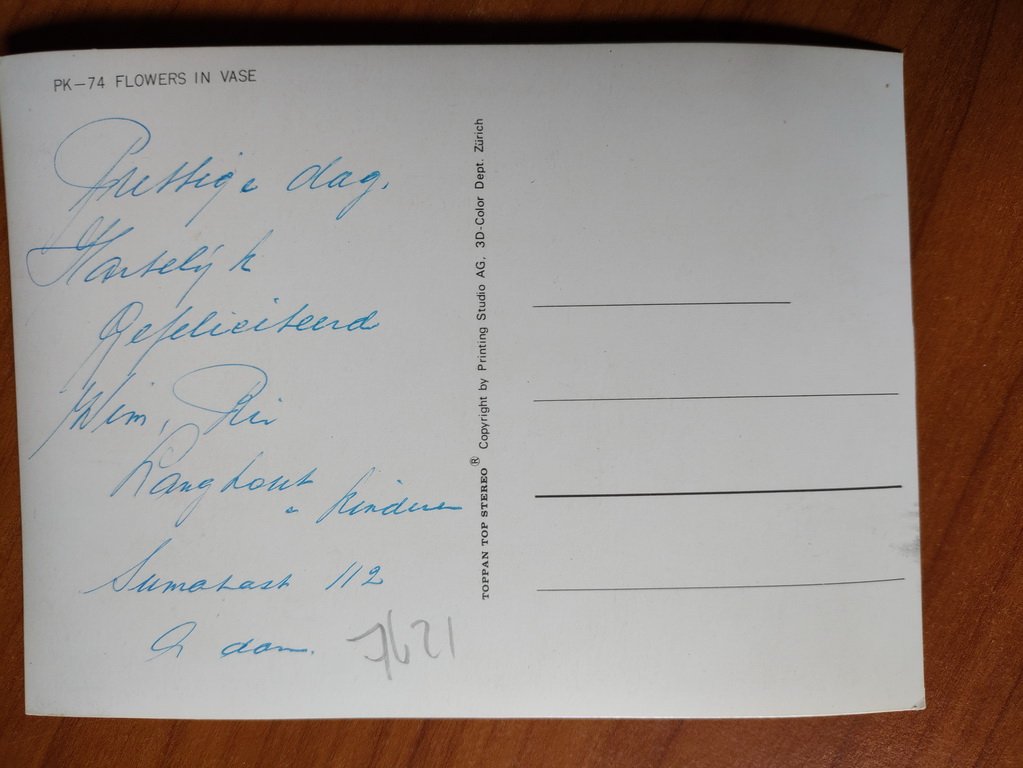 PK—74 FLOWERS IN VASE
Prettige dag.
Hartelijk
Gefeliciteerd
Wim, Ria
Langhout
e kinderen
Sumatrast 112
A dam.
7621
TOPPAN TOP STEREO® Copyright by Printing Studio AG, 3D-Color Dept. Zürich